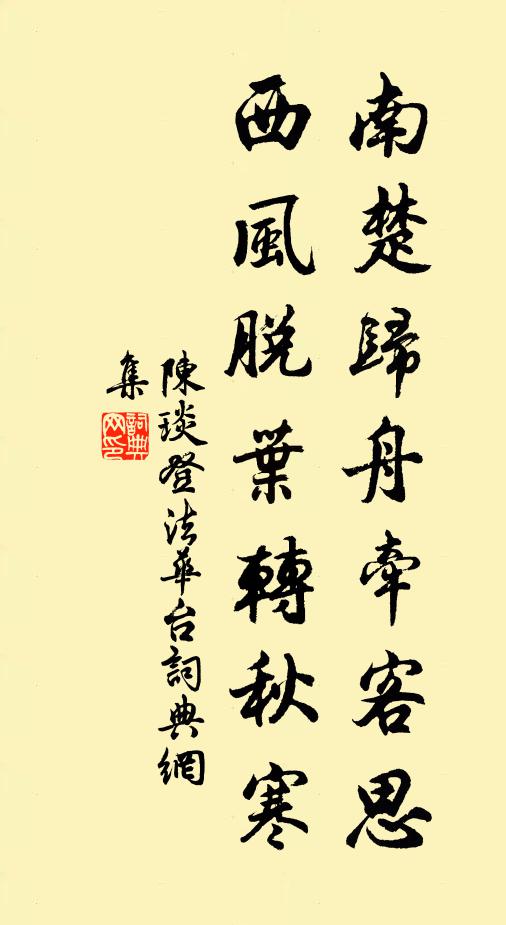 南楚歸舟牽客思
西風脫葉轉秋寒
陳琰登法華台詞典網
集
詞典網印